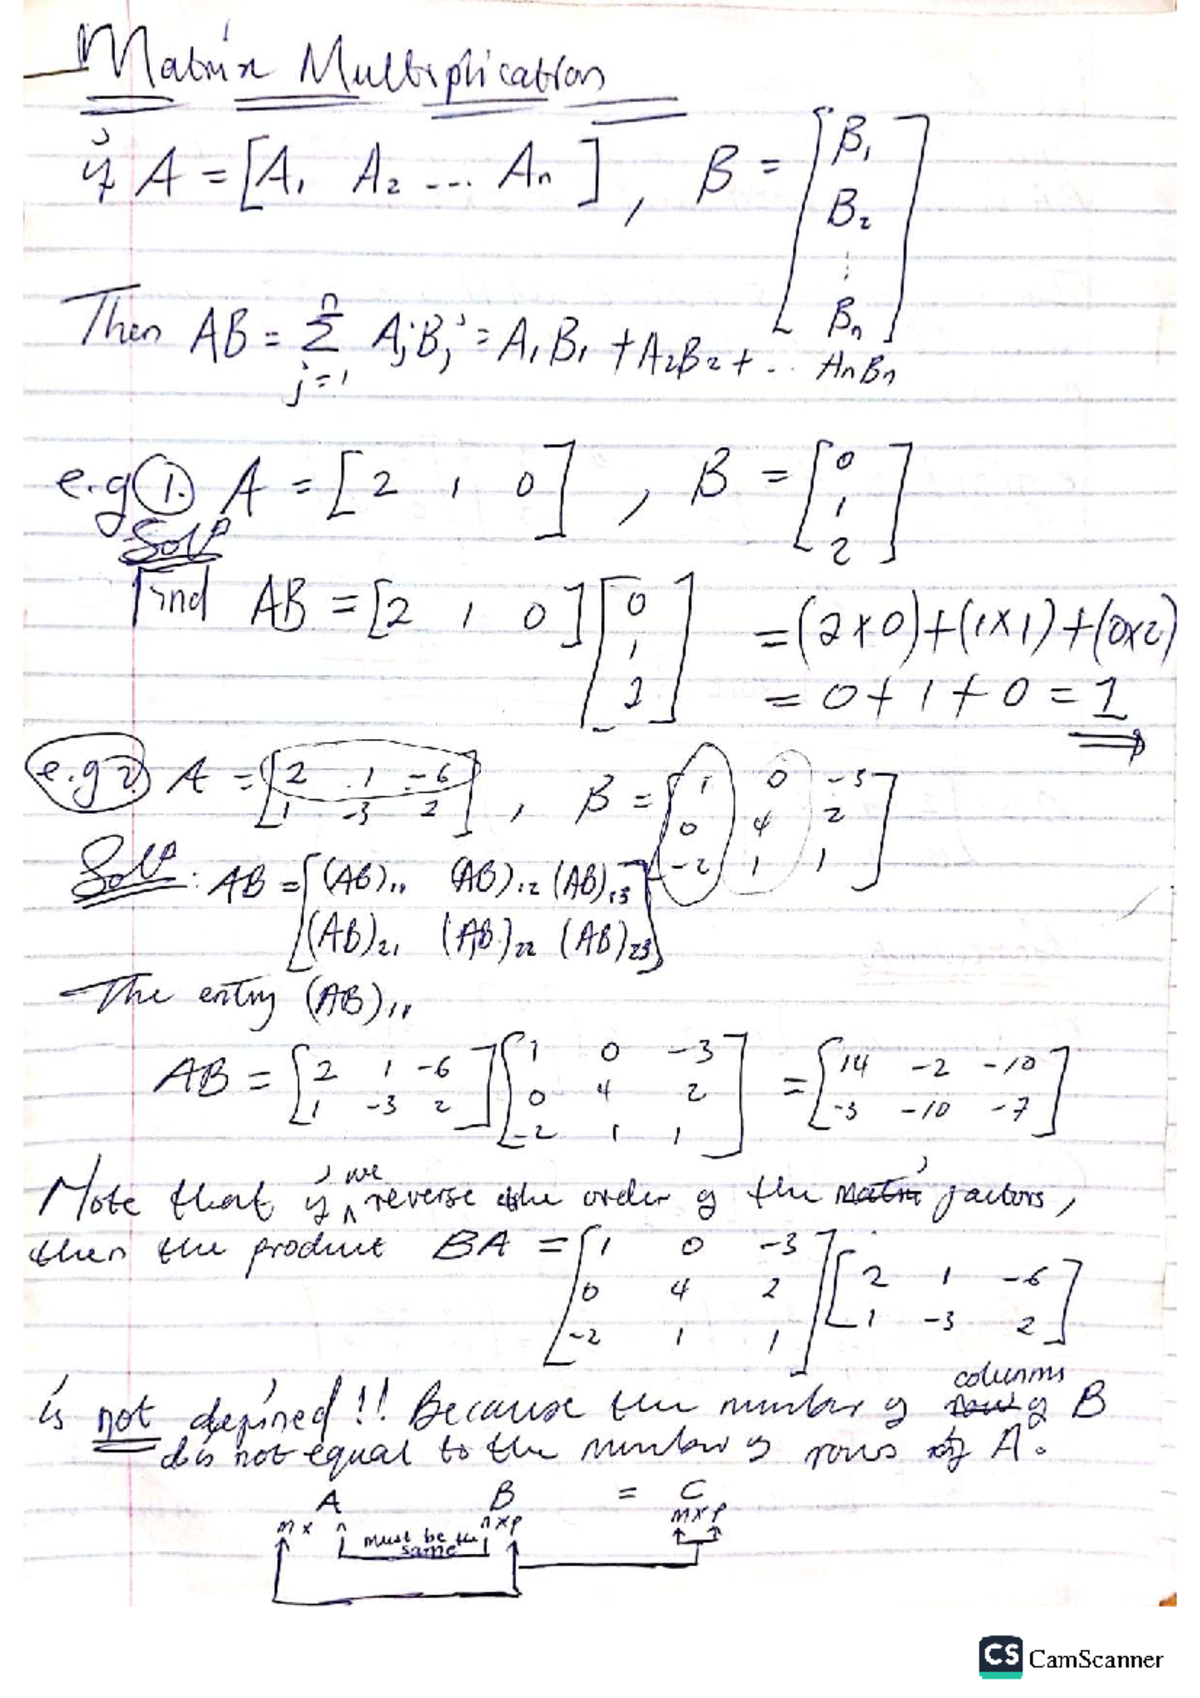 Matrix Multiplication
if A = [A₁ A₂ ... An], B = [B₁ B₂ ⋮ Bn]
Then AB = n Σ j=1 AjBj = A₁B₁ + A₂B₂ + ... AnBn
e.g ①. A = [2 1 0], B = [0 1 2]
Solⁿ
Find AB = [2 1 0] [0 1 2] = (2×0)+(1×1)+(0×2)
= 0+1+0 = 1
e.g 2. A = [2 1 -6 1 -3 2], B = [1 0 -3 0 4 2 -2 1 1]
Solⁿ: AB = [(AB)₁₁ (AB)₁₂ (AB)₁₃
(AB)₂₁ (AB)₂₂ (AB)₂₃]
The entry (AB)₁₁
AB = [2 1 -6 1 -3 2] [1 0 -3 0 4 2 -2 1 1] = [14 -2 -10 -3 -10 -7]
Note that if we reverse the order of the matrix factors,
then the product BA = [1 0 -3 0 4 2 -2 1 1] [2 1 -6 1 -3 2]
is not defined!! Because the number of columns of B
is not equal to the number of rows of A.
A B = C
m×n n×p m×p
must be the
same
CS CamScanner